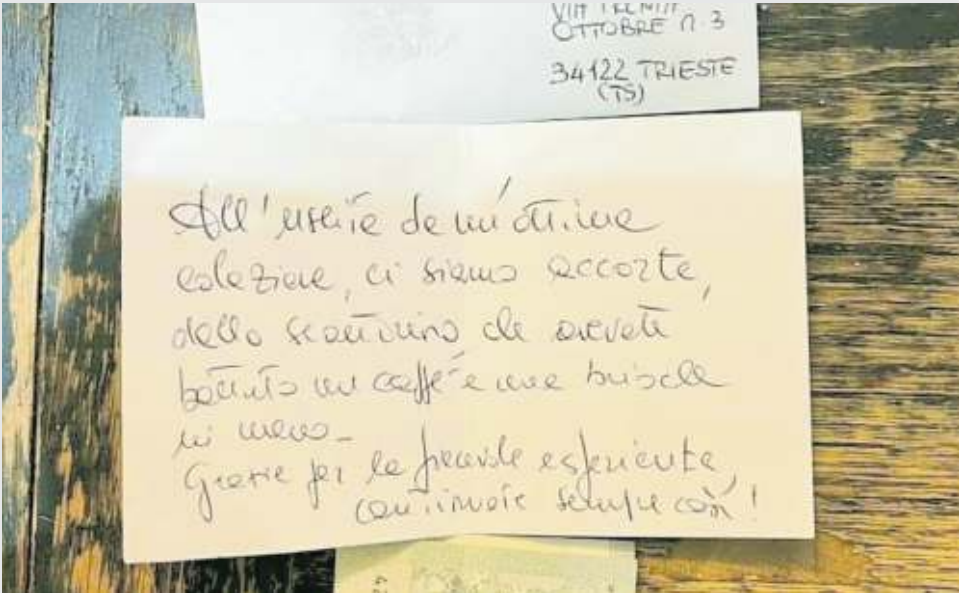 VIA TRENTA
OTTOBRE N 3
34122 TRIESTE
(TS)
All'uscita da un'ottima
colazione, ci siamo accorte,
dallo scontrino che avevate
battuto un caffè e una briosche
in meno-
Grazie per la piacevole esperienza,
continuate sempre così!